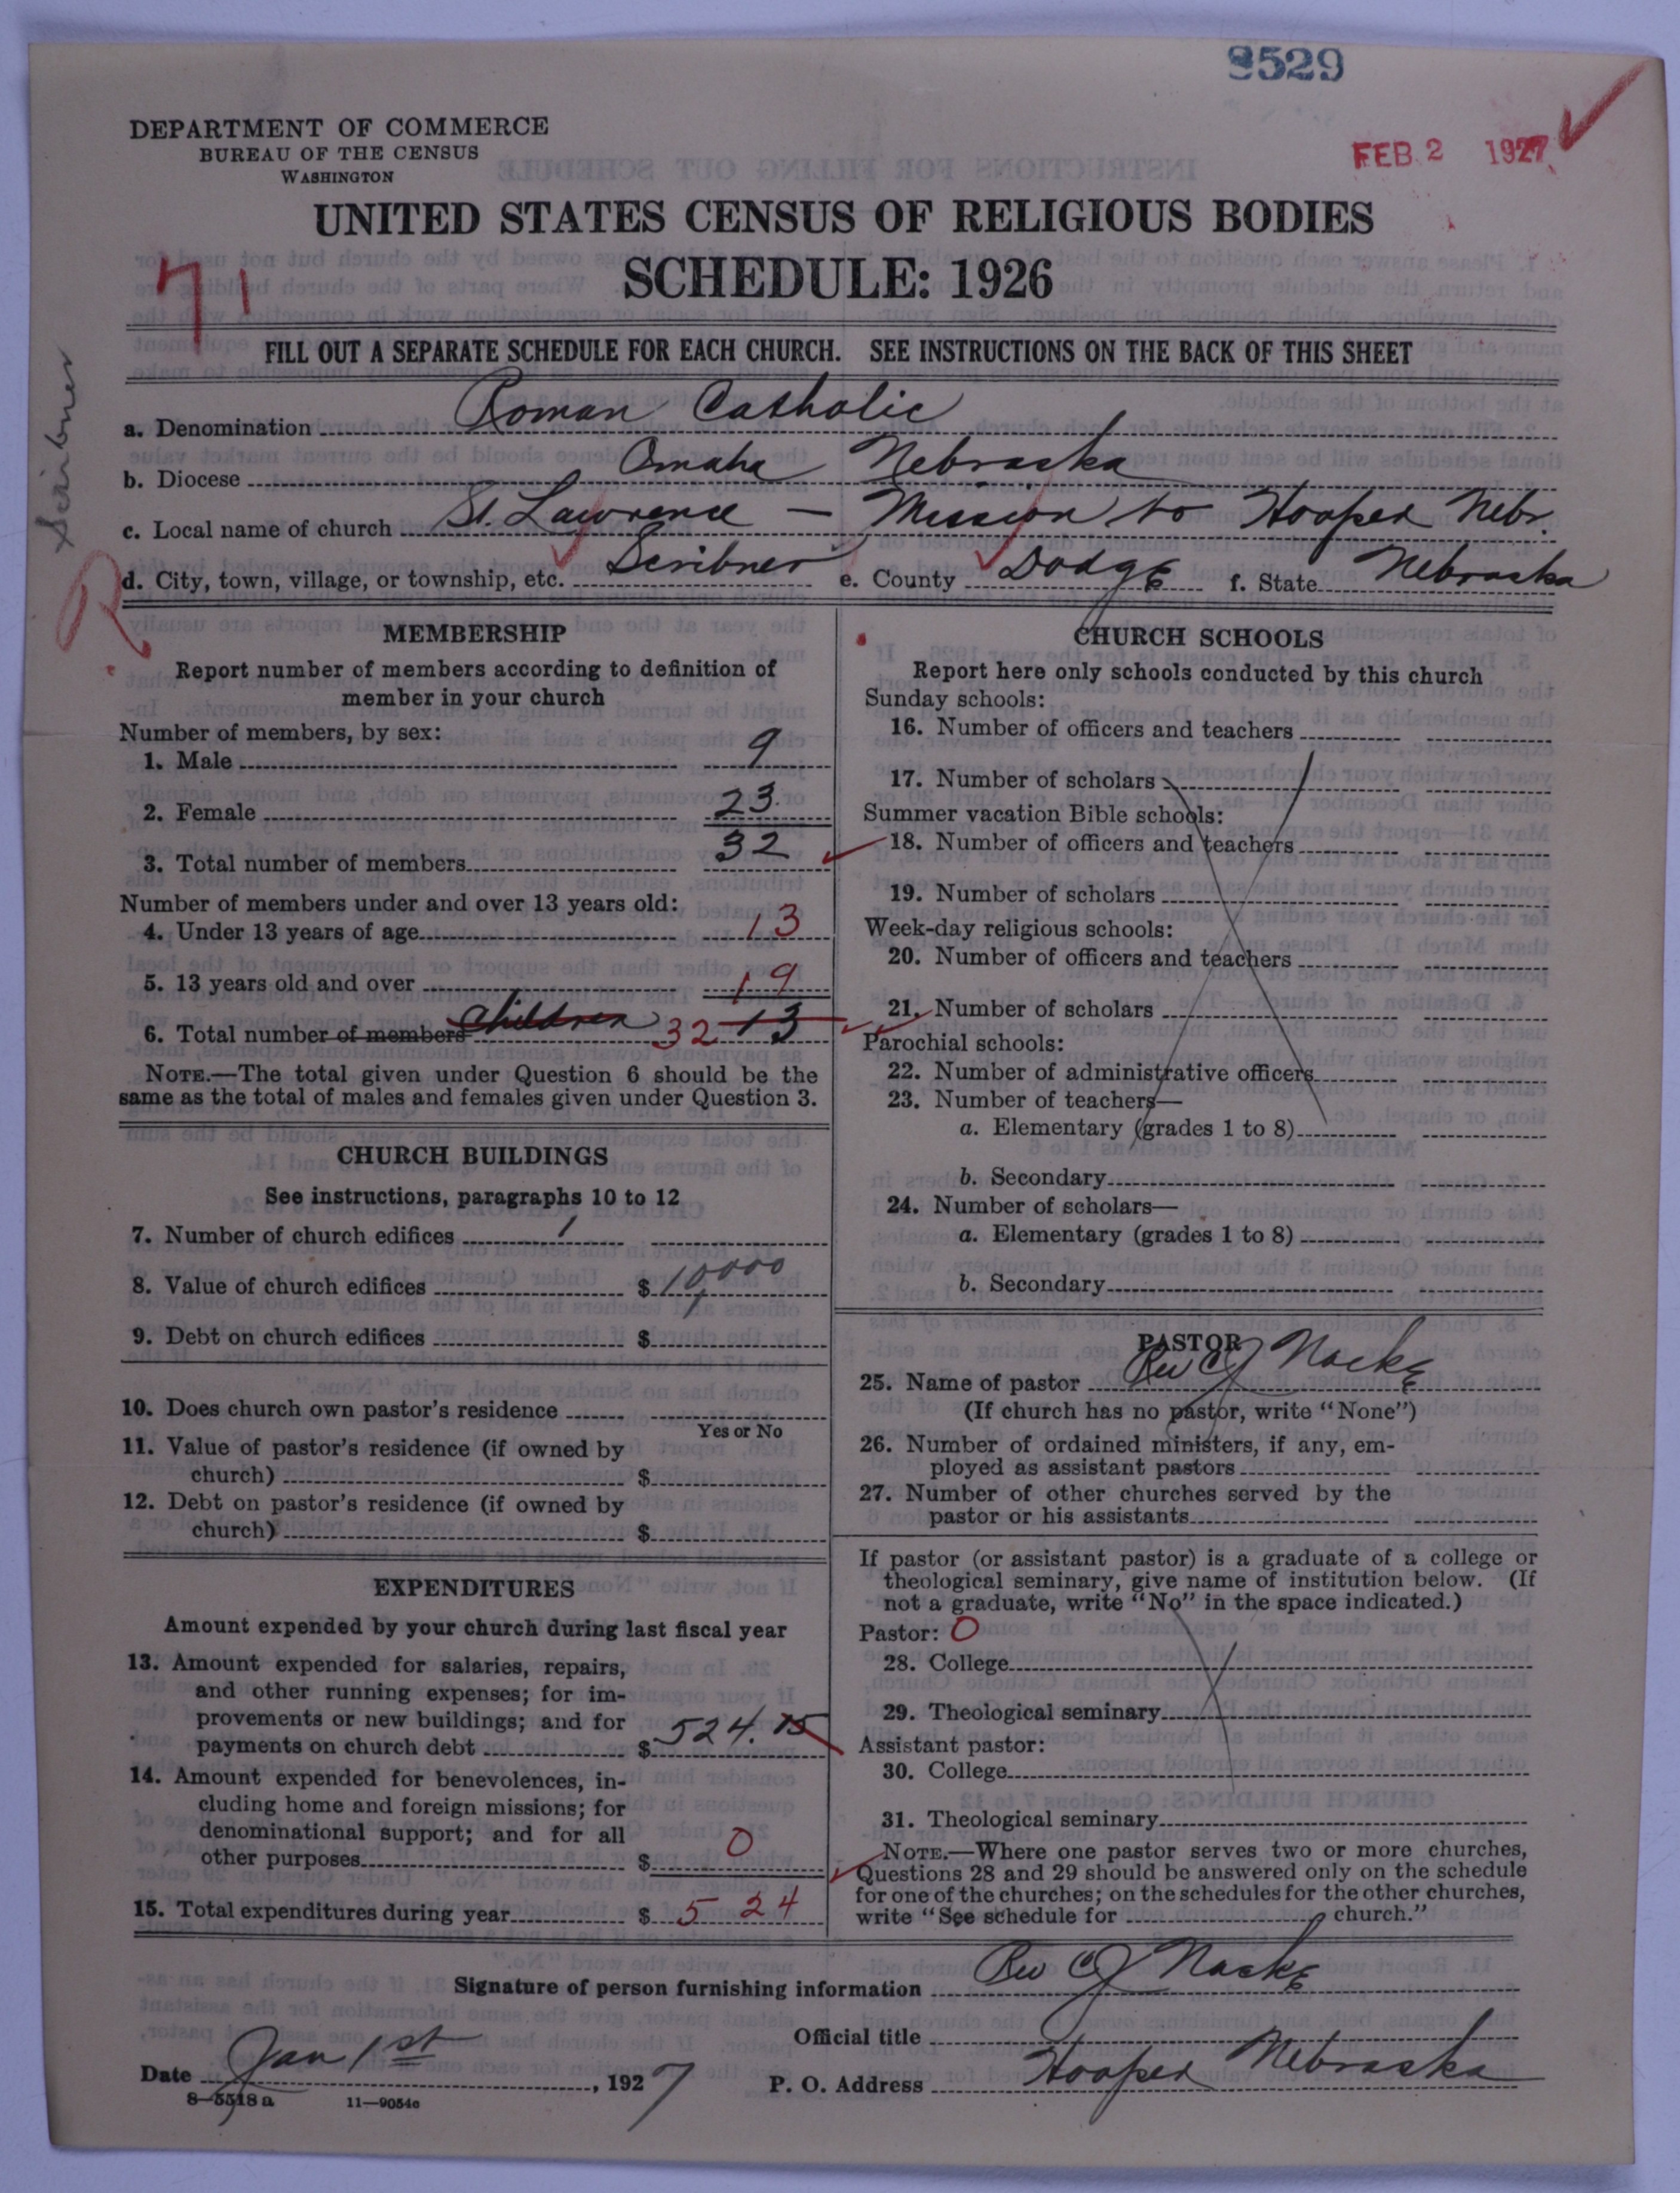 8529
DEPARTMENT OF COMMERCE
BUREAU OF THE CENSUS
WASHINGTON
FEB 2 1927
UNITED STATES CENSUS OF RELIGIOUS BODIES
SCHEDULE: 1926
71
Scribner
FILL OUT A SEPARATE SCHEDULE FOR EACH CHURCH. SEE INSTRUCTIONS ON THE BACK OF THIS SHEET
a. Denomination Roman Catholic
b. Diocese Omaha Nebraska
c. Local name of church St. Lawrence — Mission to Hooper Nebr.
d. City, town, village, or township, etc. Scribner e. County Dodge f. State Nebraska
R
MEMBERSHIP
Report number of members according to definition of
member in your church
Number of members, by sex:
1. Male 9
2. Female 23
3. Total number of members 32
Number of members under and over 13 years old:
4. Under 13 years of age 13
5. 13 years old and over 19
6. Total number of members Children 32 13
NOTE.—The total given under Question 6 should be the
same as the total of males and females given under Question 3.
CHURCH BUILDINGS
See instructions, paragraphs 10 to 12
7. Number of church edifices 1
8. Value of church edifices $ 10,000
9. Debt on church edifices $
10. Does church own pastor's residence
Yes or No
11. Value of pastor's residence (if owned by
church) $
12. Debt on pastor's residence (if owned by
church) $
EXPENDITURES
Amount expended by your church during last fiscal year
13. Amount expended for salaries, repairs,
and other running expenses; for im-
provements or new buildings; and for
payments on church debt $ 524.15
14. Amount expended for benevolences, in-
cluding home and foreign missions; for
denominational support; and for all
other purposes $ 0
15. Total expenditures during year $ 524
CHURCH SCHOOLS
Report here only schools conducted by this church
Sunday schools:
16. Number of officers and teachers
17. Number of scholars
Summer vacation Bible schools:
18. Number of officers and teachers
19. Number of scholars
Week-day religious schools:
20. Number of officers and teachers
21. Number of scholars
Parochial schools:
22. Number of administrative officers
23. Number of teachers—
a. Elementary (grades 1 to 8)
b. Secondary
24. Number of scholars—
a. Elementary (grades 1 to 8)
b. Secondary
PASTOR
25. Name of pastor Rev CJ Nacke
(If church has no pastor, write "None")
26. Number of ordained ministers, if any, em-
ployed as assistant pastors
27. Number of other churches served by the
pastor or his assistants
If pastor (or assistant pastor) is a graduate of a college or
theological seminary, give name of institution below. (If
not a graduate, write "No" in the space indicated.)
Pastor: 0
28. College
29. Theological seminary
Assistant pastor:
30. College
31. Theological seminary
NOTE.—Where one pastor serves two or more churches,
Questions 28 and 29 should be answered only on the schedule
for one of the churches; on the schedules for the other churches,
write "See schedule for church."
Signature of person furnishing information Rev CJ Nacke
Official title
Date Jan 1st, 1927 P. O. Address Hooper Nebraska
8—5518a 11—9054c